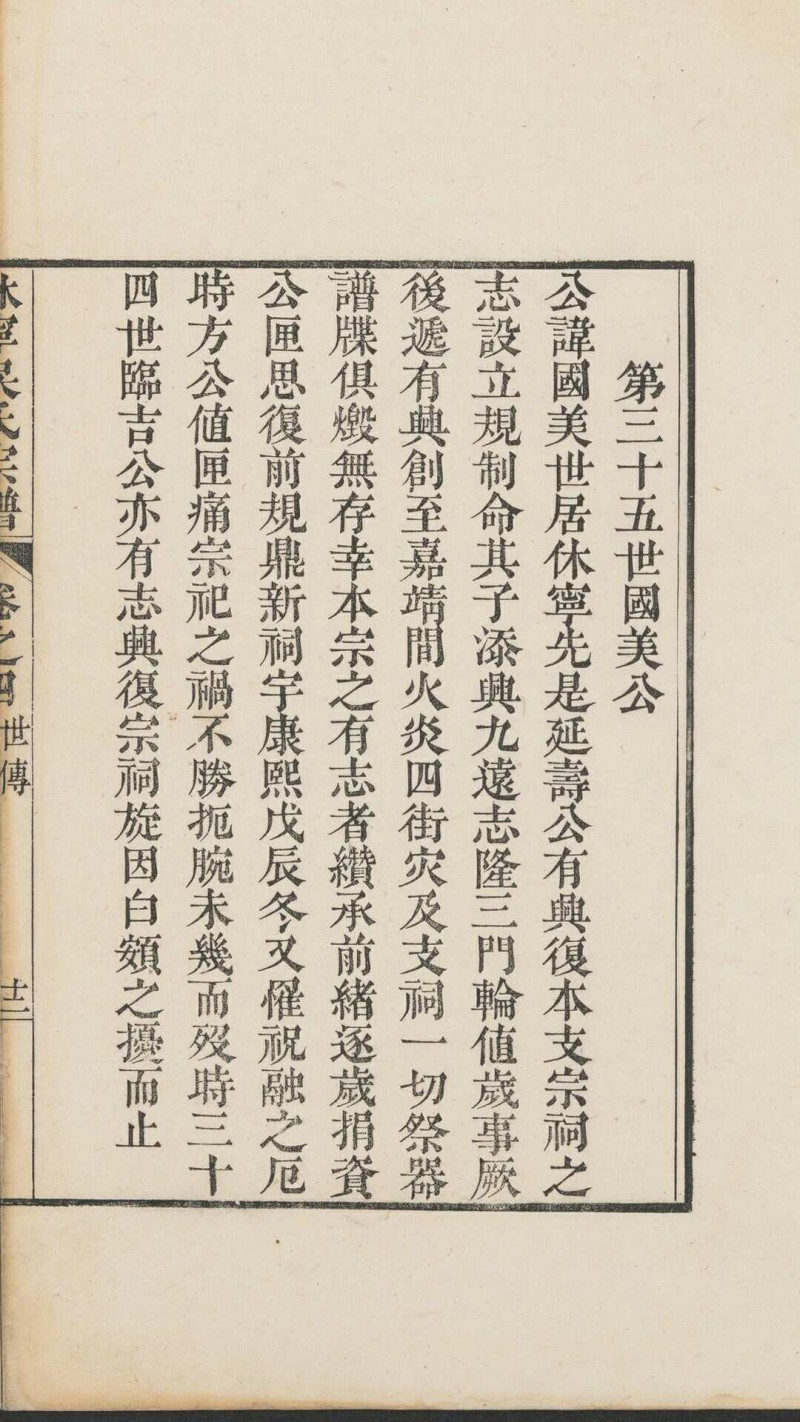 第三十五世國美公
公諱國美世居休寧先是延壽公有興復本支宗祠之
志設立規制命其子添興九遠志隆三門輪值歲事厥
後遞有興創至嘉靖間火炎四街灾及支祠一切祭器
譜牒俱燬無存幸本宗之有志者纘承前緒逐歲捐資
公匣思復前規鼎新祠宇康熙戊辰冬又罹祝融之厄
時方公值匣痛宗祀之禍不勝扼腕未幾而歿時三十
四世臨吉公亦有志興復宗祠旋因白頦之擾而止
休寧吳氏宗譜
卷之四
世傳
十二